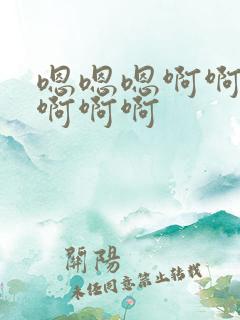 嗯嗯嗯啊啊
啊啊啊
開陽
未经同意禁止转载